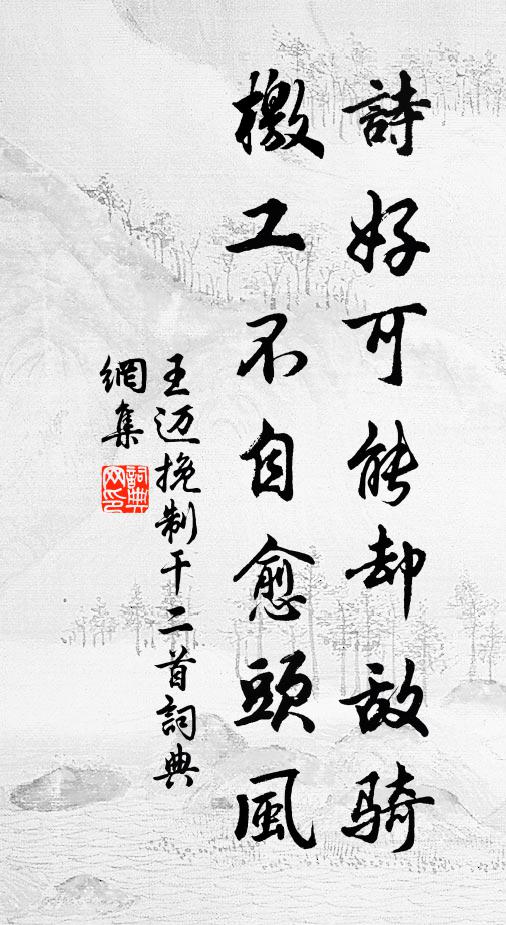 詩好可能却敌騎
檄工不自愈頭風
王迈挽制干二首詞典
網集
詞典
网印